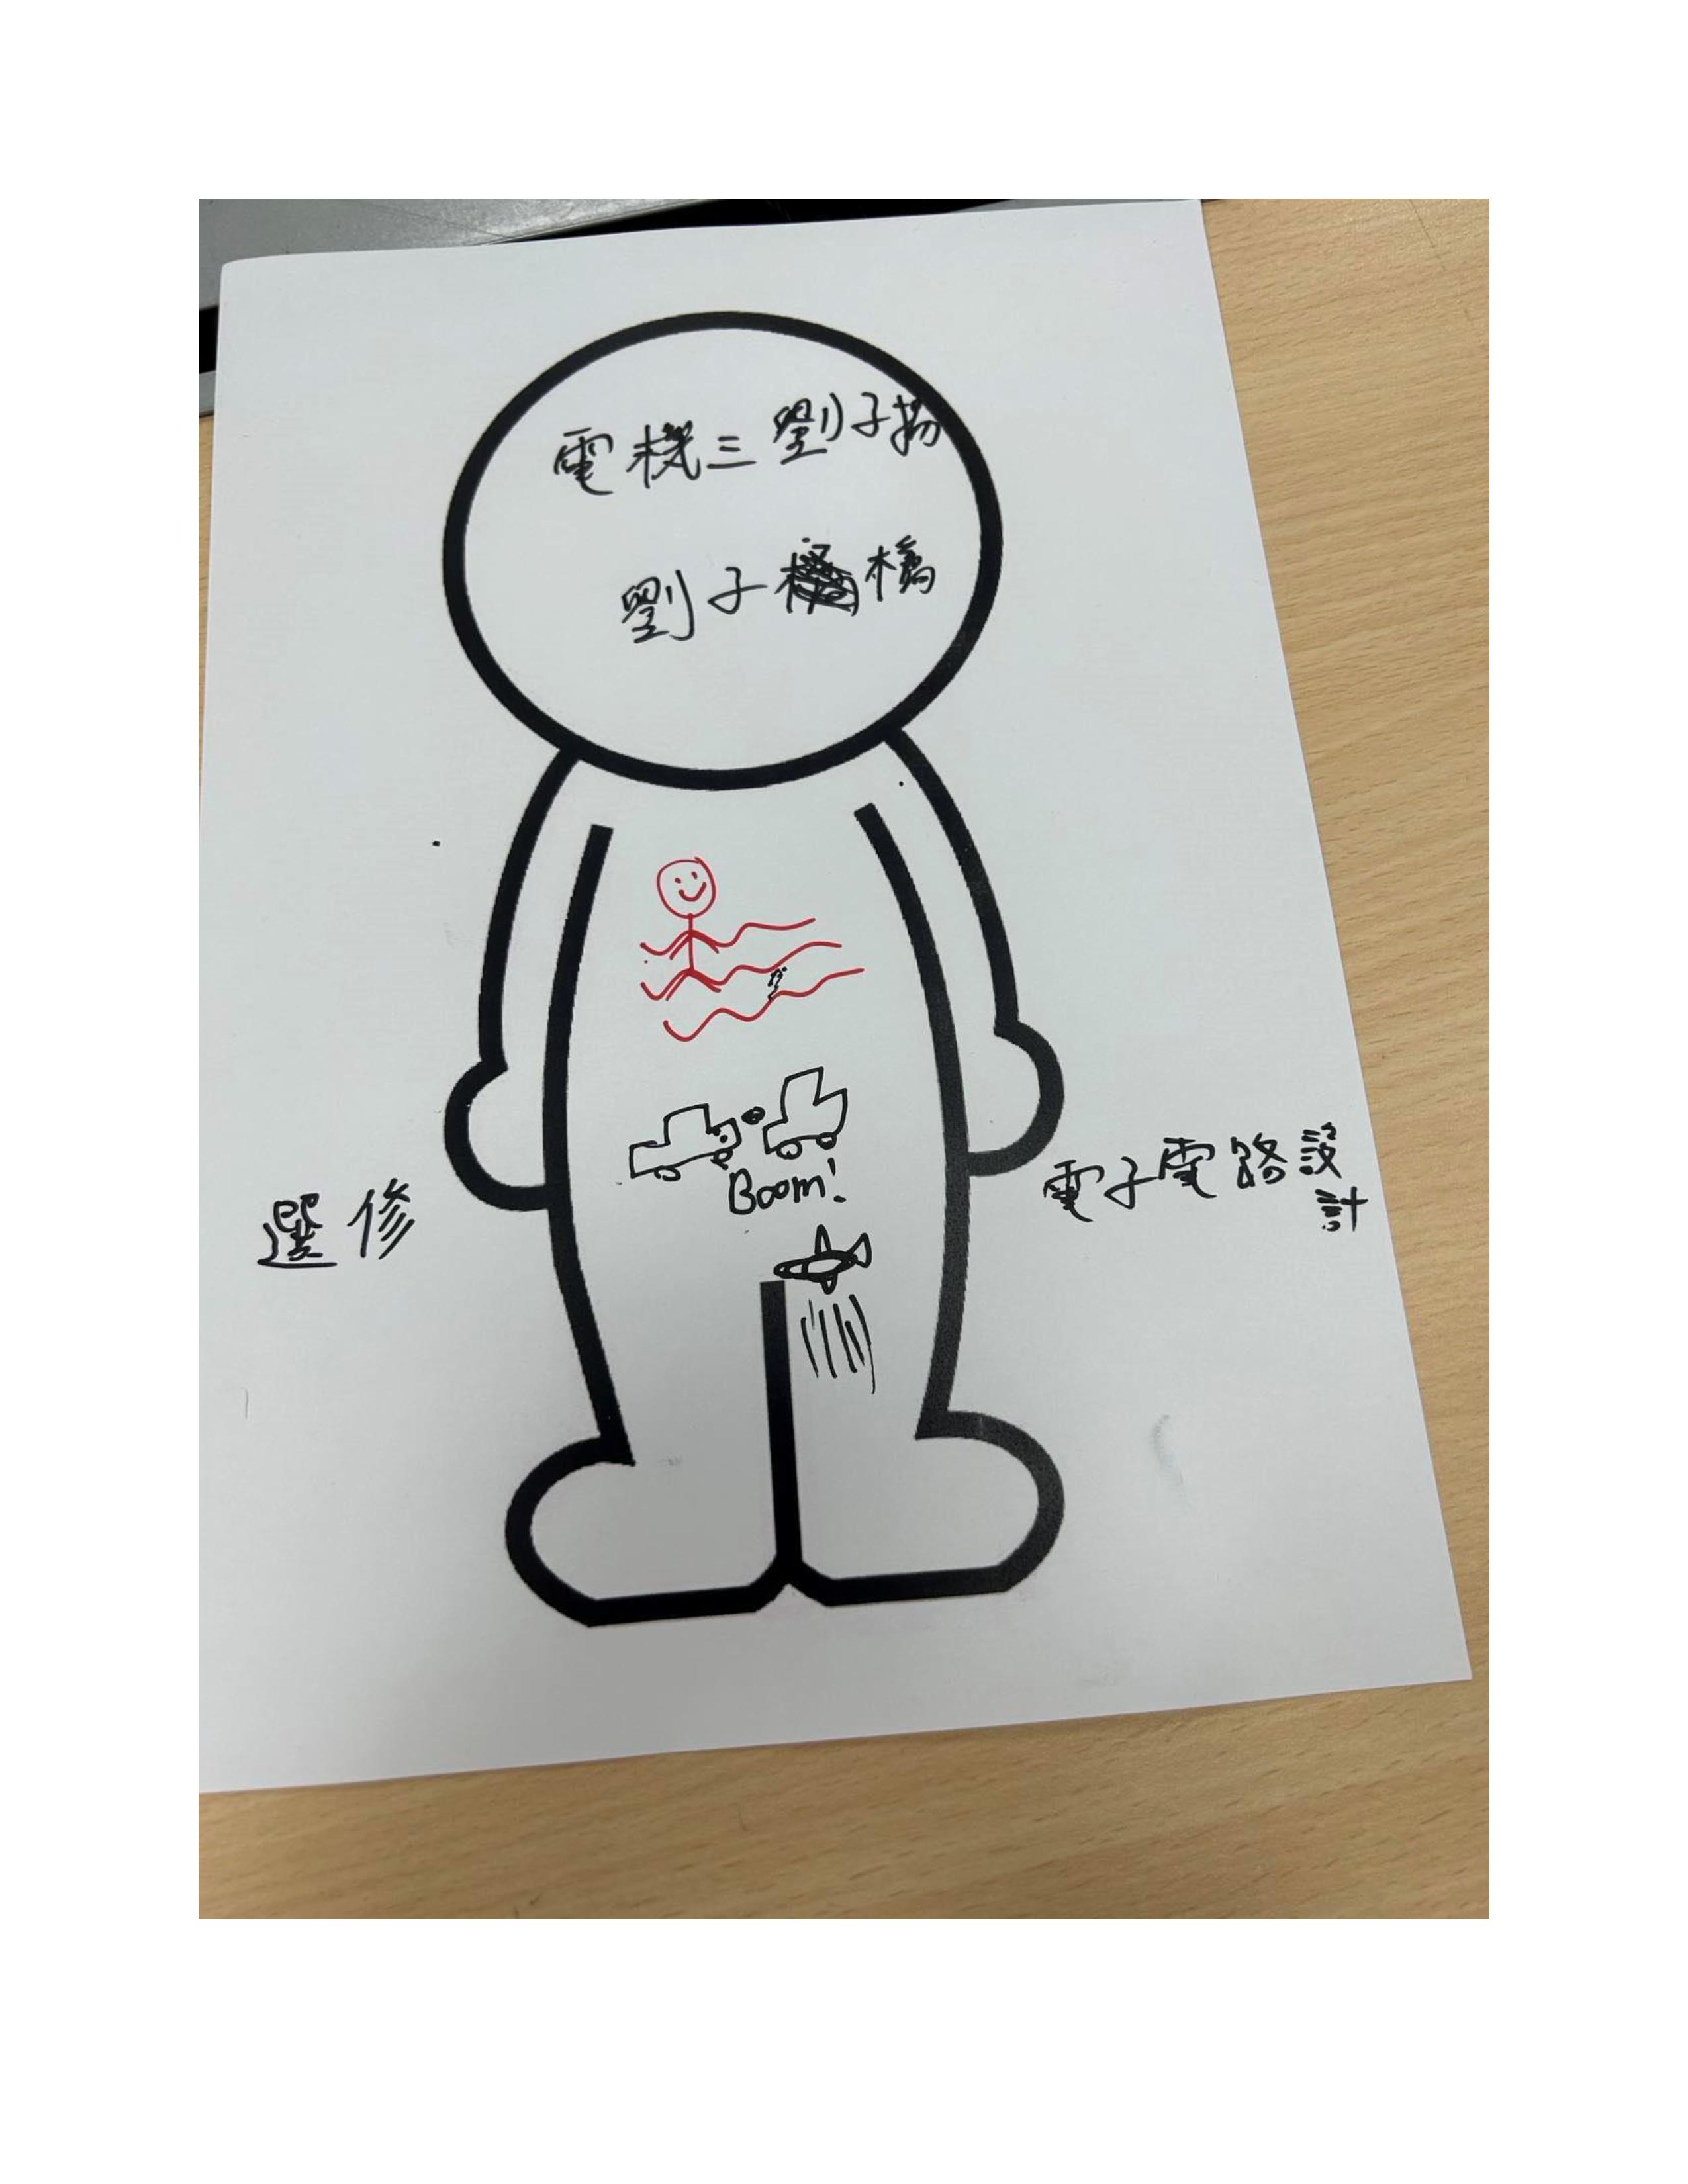 電機三劉子揚
劉子橋
Boom!
選修
電子電路設
計